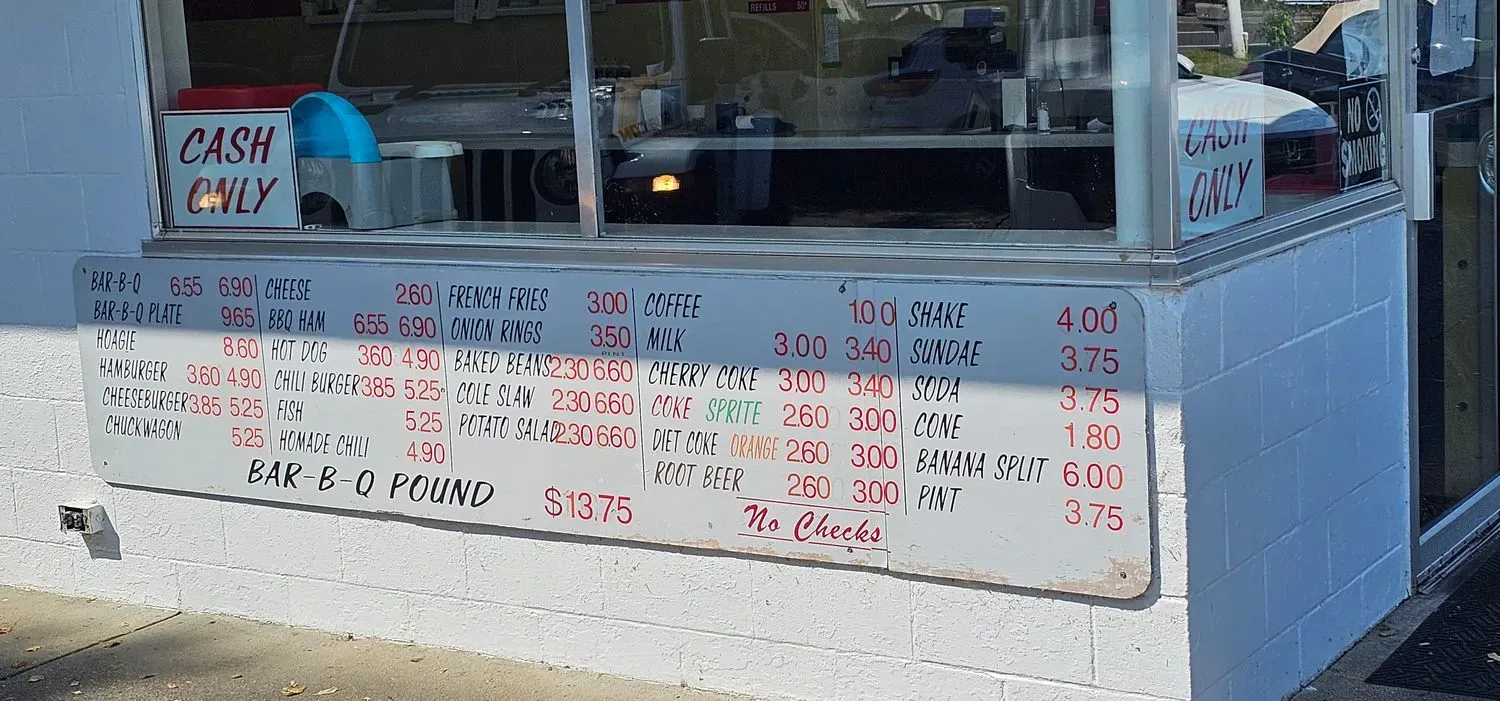 REFILLS 50¢
CASH
ONLY
CASH
ONLY
NO
SMOKING
BAR-B-Q 6.55 6.90
BAR-B-Q PLATE 9.65
HOAGIE 8.60
HAMBURGER 3.60 4.90
CHEESEBURGER 3.85 5.25
CHUCKWAGON 5.25
CHEESE 2.60
BBQ HAM 6.55 6.90
HOT DOG 3.60 4.90
CHILI BURGER 3.85 5.25
FISH 5.25
HOMADE CHILI 4.90
FRENCH FRIES 3.00
ONION RINGS 3.50
PINT
BAKED BEANS 2.30 6.60
COLE SLAW 2.30 6.60
POTATO SALAD 2.30 6.60
COFFEE 1.00
MILK 3.00 3.40
CHERRY COKE 3.00 3.40
COKE SPRITE 2.60 3.00
DIET COKE ORANGE 2.60 3.00
ROOT BEER 2.60 3.00
SHAKE 4.00
SUNDAE 3.75
SODA 3.75
CONE 1.80
BANANA SPLIT 6.00
PINT 3.75
BAR-B-Q POUND $13.75
No Checks